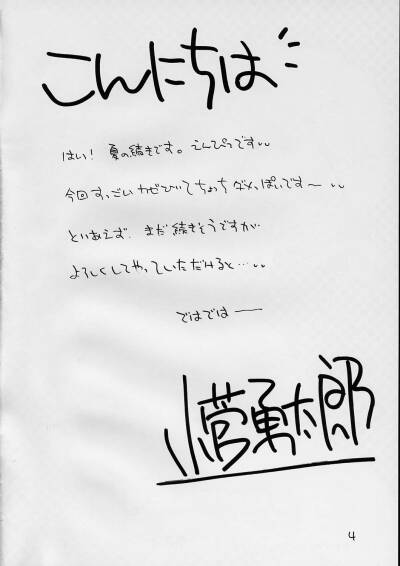 こんにちは
はい! 夏の続きです。えんぴつです〃
今回すっごいかぜひいてちょっちダメっぽいです〜 〃
といあえず、まだ続きそうですが
よろしくしてやっていただけると…〃
ではでは――
小菅勇太郎
4